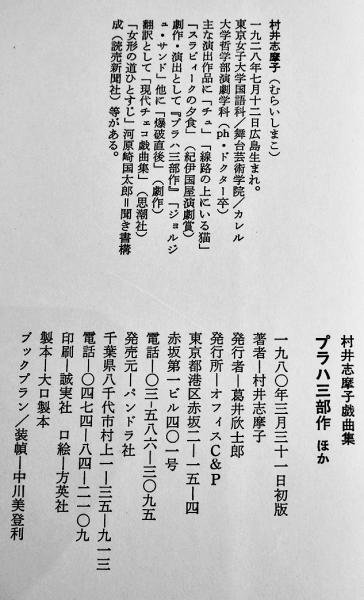 村井志摩子(むらいしまこ)
一九二八年七月十二日広島生まれ。
東京女子大学国語科/舞台芸術学院/カレル
大学哲学部演劇学科(ph・ドクター卒)
主な演出作品に「チュ」「線路の上にいる猫」
「スラビィークの夕食」(紀伊国屋演劇賞)
劇作・演出として『プラハ三部作』「ジョルジ
ュ・サンド」他に「爆破直後」(劇作)
翻訳として「現代チェコ戯曲集」(思潮社)
「女形の道ひとすじ」河原崎国太郎=聞き書構
成(読売新聞社)等がある。
村井志摩子戯曲集
プラハ三部作 ほか
一九八〇年三月三十一日初版
著者―村井志摩子
発行者―葛井欣士郎
発行所―オフィスC&P
東京都港区赤坂二―一五―四
赤坂第一ビル四〇一号
電話―〇三―五八六―三〇九五
発売元―パンドラ社
千葉県八千代市村上一―三五―九一三
電話―〇四七四―八四―二一〇九
印刷―誠実社 口絵―方英社
製本―大口製本
ブックプラン/装幀―中川美登利